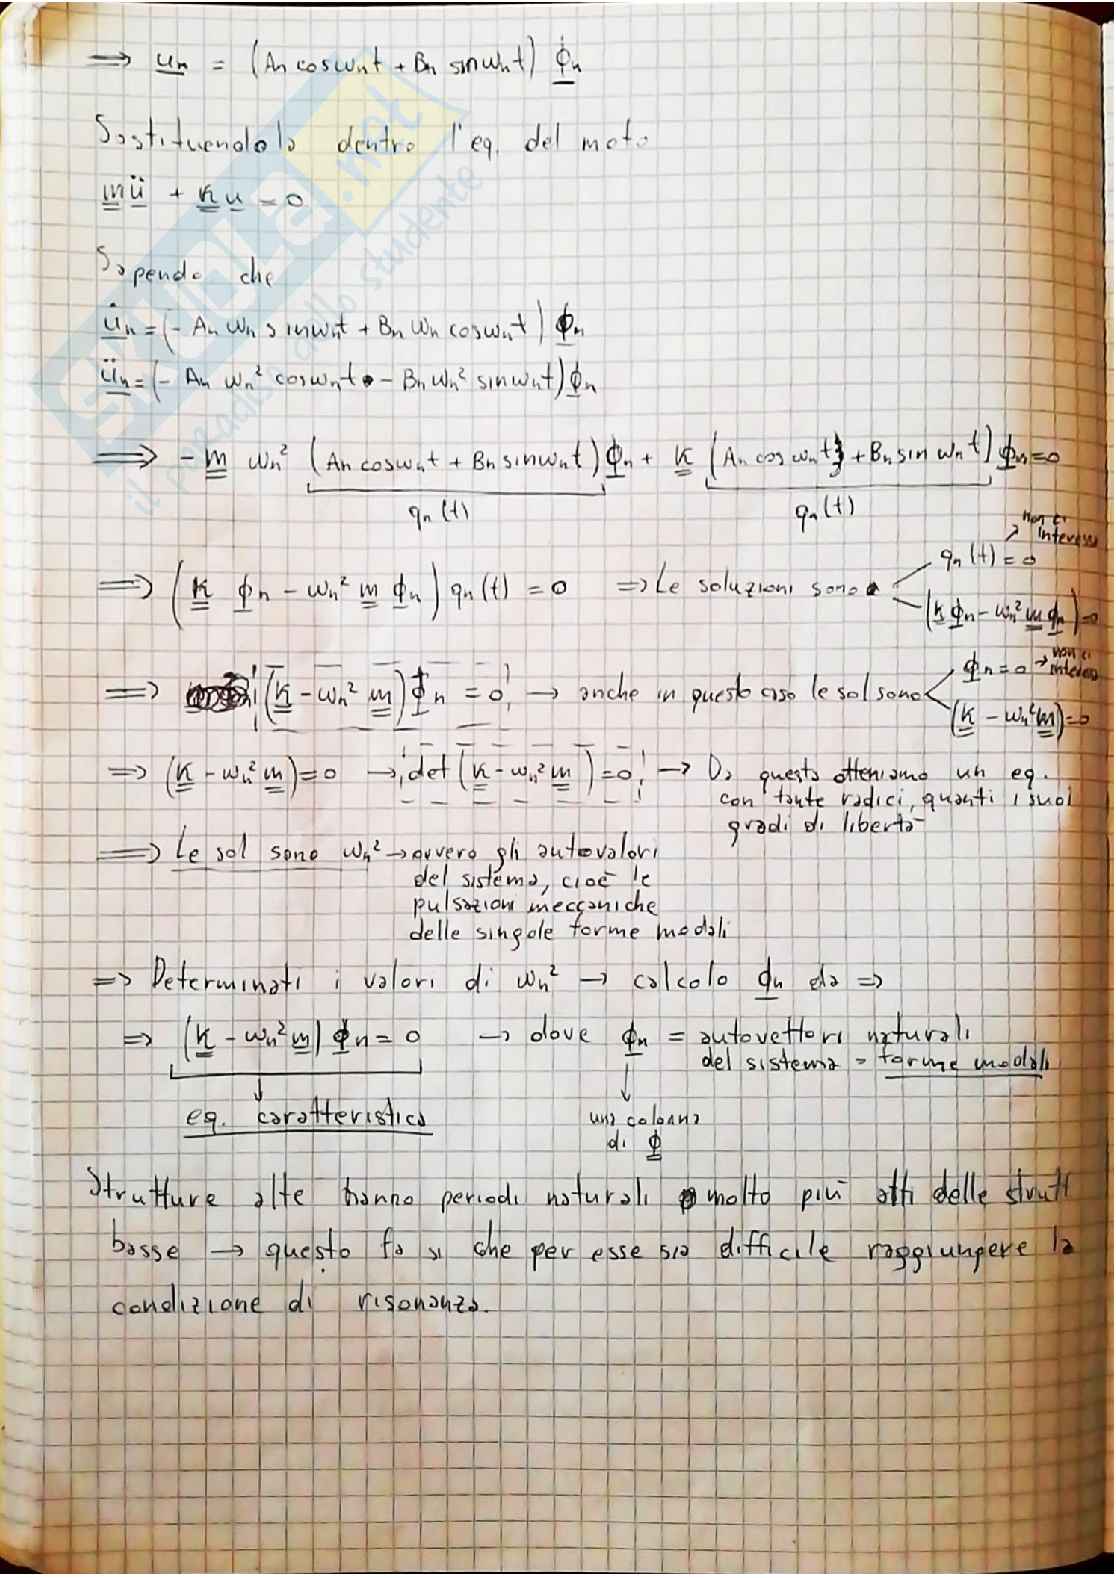 ⟹ u̲n = (An cosωnt + Bn sinωnt) ϕ̲n
Sostituendolo dentro l'eq. del moto
m̳ü̲ + k̳ u̲ = 0
Sapendo che
u̲̇n = (- An ωn sinωnt + Bn ωn cosωnt) ϕ̲n
ü̲n = (- An ωn² cosωnt - Bn ωn² sinωnt) ϕ̲n
⟹ - m̳ ωn² (An cosωnt + Bn sinωnt) ϕ̲n + k̳ (An cos ωnt + Bn sin ωnt) ϕ̲n = 0
qn(t) qn(t)
non ci interessa
⟹ (k̳ ϕ̲n - ωn² m̳ ϕ̲n) qn(t) = 0 ⟹ Le soluzioni sono qn(t) = 0
(k̳ ϕ̲n - ωn² m̳ ϕ̲n) = 0
⟹ (k̳ - ωn² m̳) ϕ̲n = 0 → anche in questo caso le sol sono ϕ̲n = 0 → non ci interessa
(k̳ - ωn² m̳) = 0
⟹ (k̳ - ωn² m̳) = 0 → det (k̳ - ωn² m̳) = 0 → Da questa otteniamo un eq.
con tante radici, quanti i suoi
gradi di libertà
⟹ Le sol sono ωn² → ovvero gli autovalori
del sistema, cioè le
pulsazioni meccaniche
delle singole forme modali
⟹ Determinati i valori di ωn² → calcolo ϕ̲n da ⟹
⟹ (k̳ - ωn² m̳) ϕ̲n = 0 → dove ϕ̲n = autovettori naturali
del sistema = forme modali
eq. caratteristica una colonna
di ϕ̳
Strutture alte hanno periodi naturali molto più alti delle strutt
basse → questo fa si che per esse sia difficile raggiungere la
condizione di risonanza.
SKUOLA.net
il paradiso dello studente